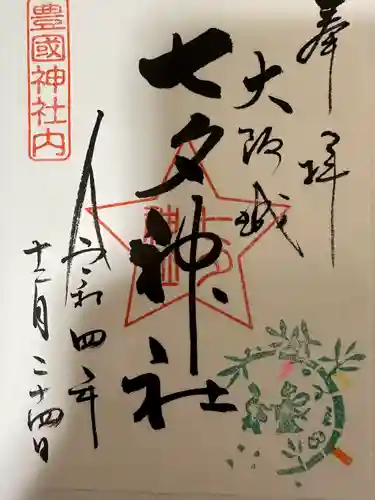 奉拝
大阪城
七夕神社
七夕神社
令和四年
十二月二十四日
豊國神社内